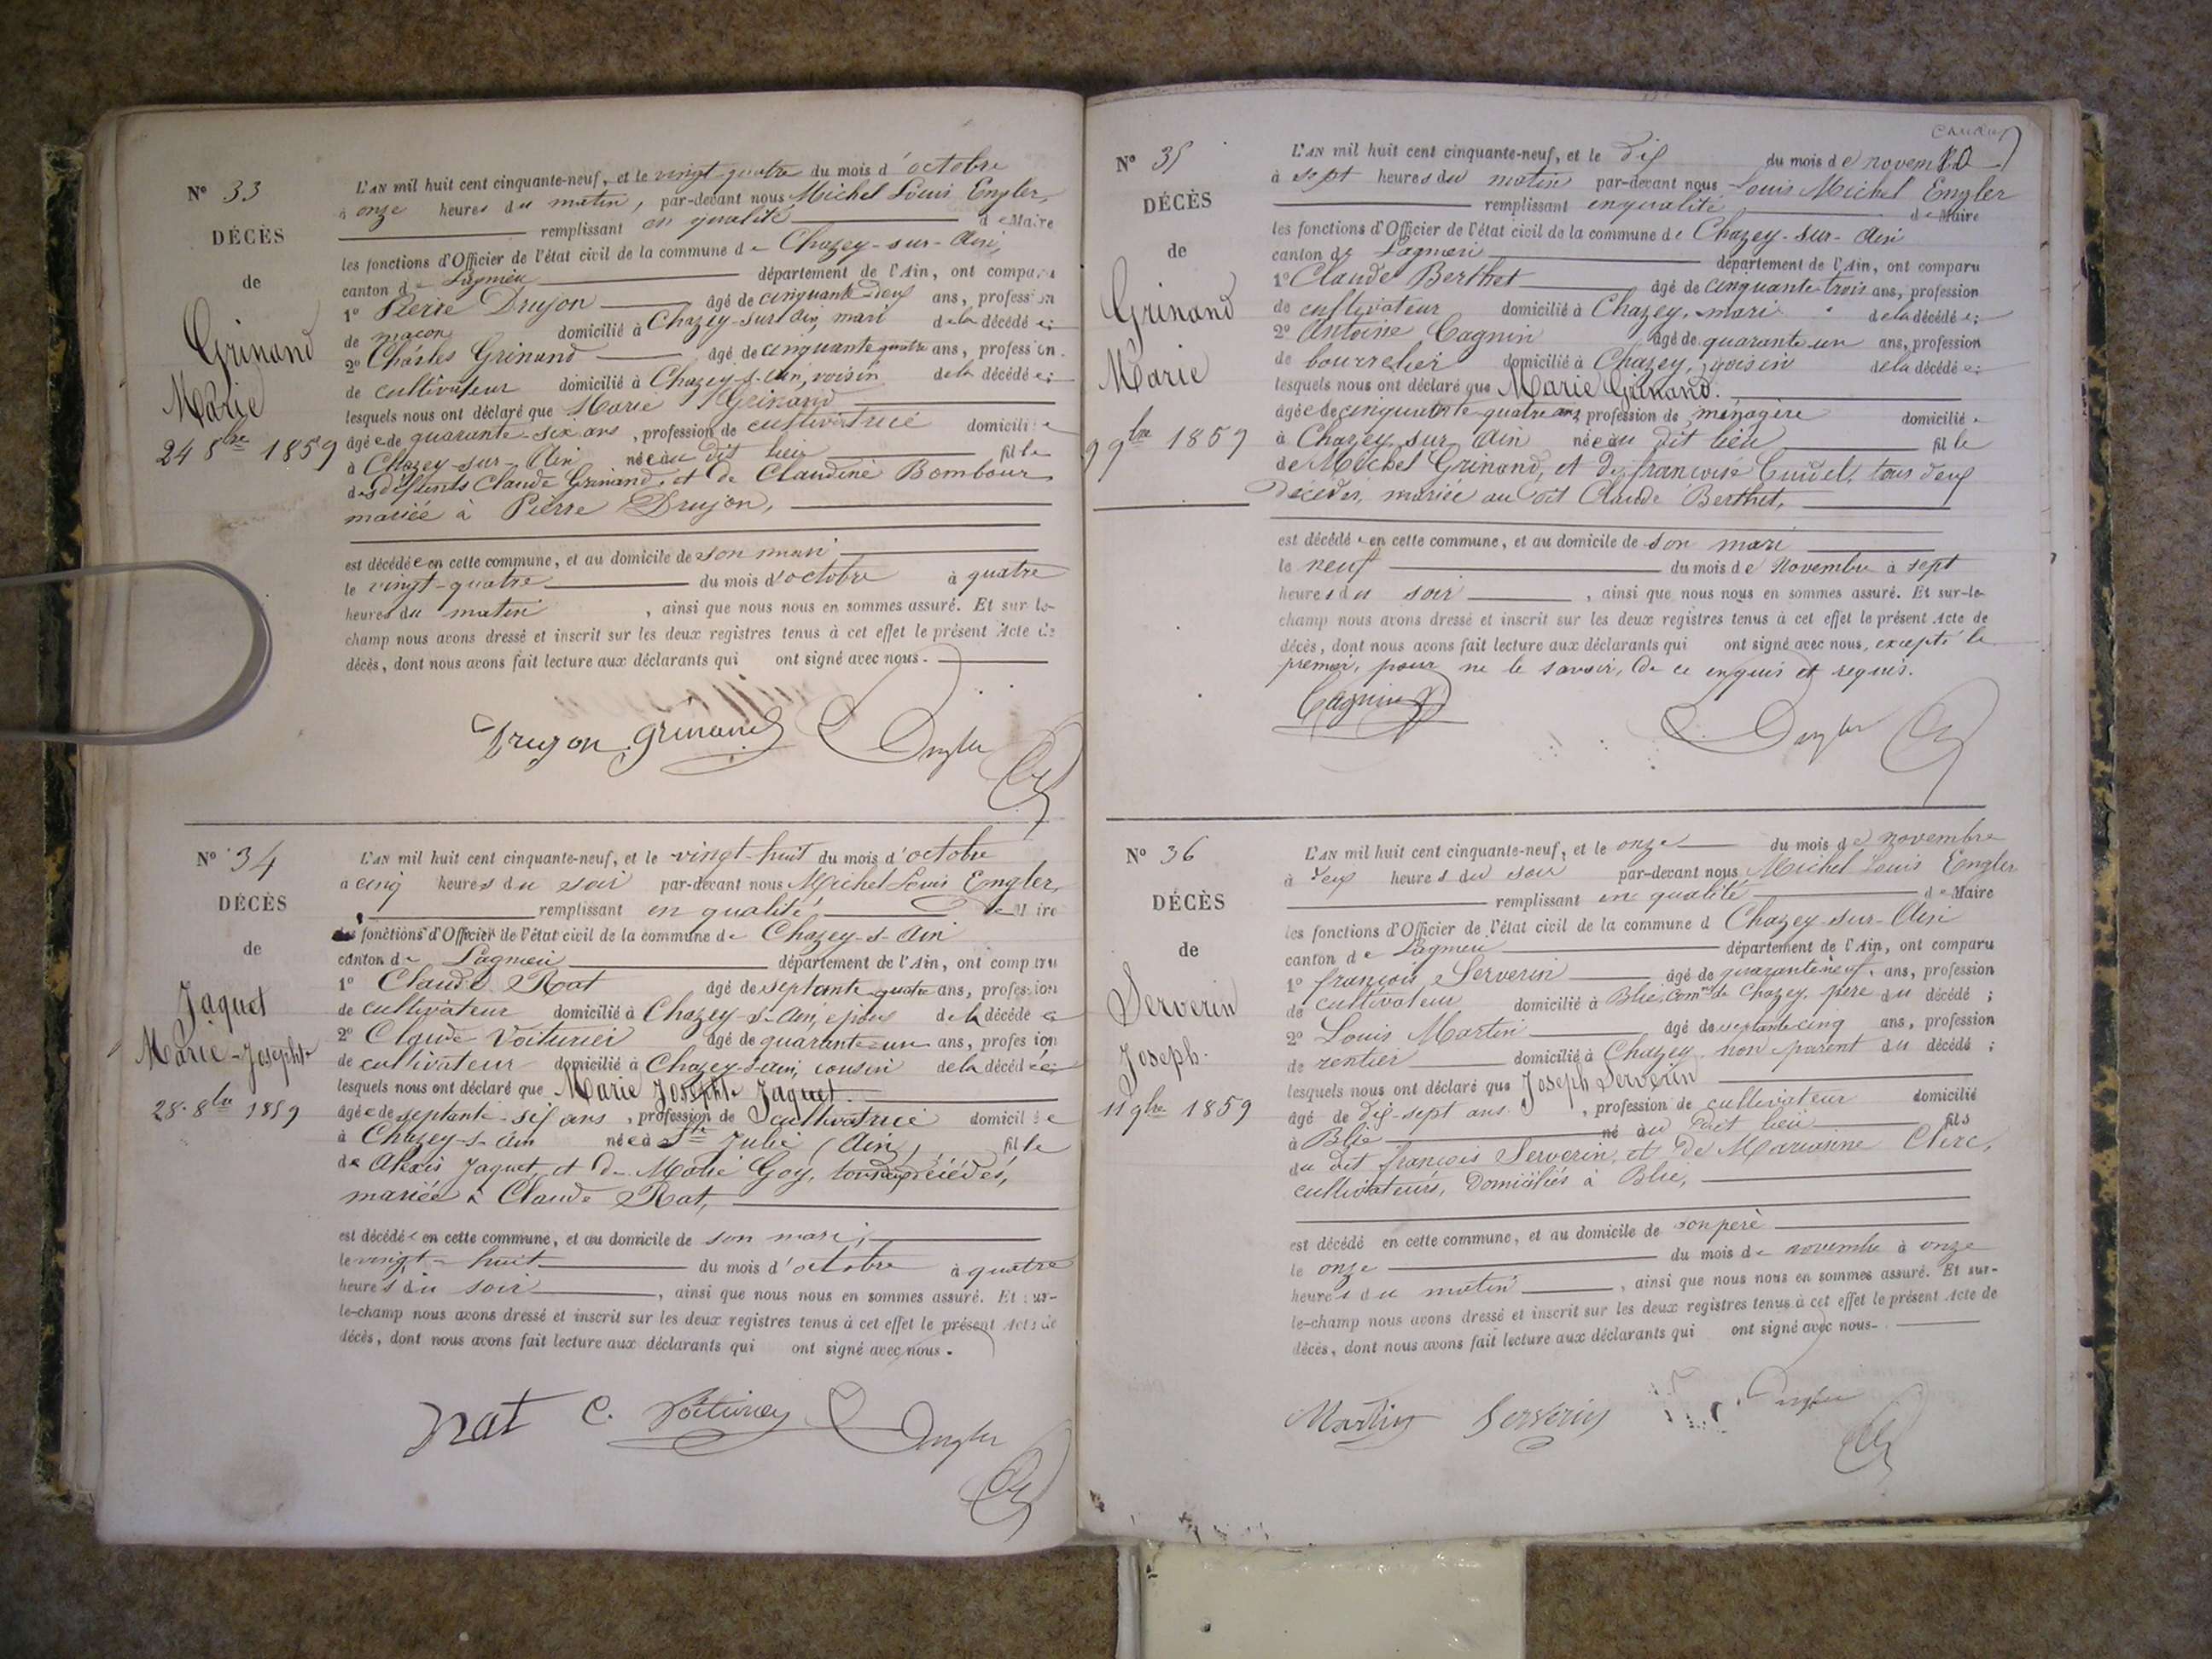 N° 33
DÉCÈS
de
Grinand
Marie
24 8bre 1859
L'AN mil huit cent cinquante-neuf, et le vingt-quatre du mois d'octobre
à onze heures du matin, par-devant nous Michel Louis Engler,
remplissant en qualité de Maire
les fonctions d'Officier de l'état civil de la commune de Chazey-sur-Ain,
canton de Lagnieu département de l'Ain, ont comparu
1° Pierre Drujon âgé de cinquante-deux ans, profession
de maçon domicilié à Chazey-sur Ain, mari de la décédée;
2° Charles Grinand âgé de cinquante quatre ans, profession
de cultivateur domicilié à Chazey-s-Ain, voisin de la décédée;
lesquels nous ont déclaré que Marie Grinand
âgée de quarante-six ans, profession de cultivatrice domiciliée
à Chazey-sur-Ain née au dit lieu fille
des défunts Claude Grinand, et de Claudine Bombour
mariée à Pierre Drujon,
est décédée en cette commune, et au domicile de son mari
le vingt-quatre du mois d'octobre à quatre
heures du matin, ainsi que nous nous en sommes assuré. Et sur le-
champ nous avons dressé et inscrit sur les deux registres tenus à cet effet le présent Acte de
décès, dont nous avons fait lecture aux déclarants qui ont signé avec nous.
Drujon Grinand Engler
N° 34
DÉCÈS
de
Jaquet
Marie-Josephte
28 8bre 1859
L'AN mil huit cent cinquante-neuf, et le vingt-huit du mois d'octobre
à cinq heures du soir par-devant nous Michel Louis Engler,
remplissant en qualité de Maire
les fonctions d'Officier de l'état civil de la commune de Chazey-s-Ain
canton de Lagnieu département de l'Ain, ont comparu
1° Claude Rat âgé de septante-quatre ans, profession
de cultivateur domicilié à Chazey-s-Ain, époux de la décédée
2° Claude Voiturier âgé de quarante-un ans, profession
de cultivateur domicilié à Chazey-s-Ain, cousin de la décédée;
lesquels nous ont déclaré que Marie Josephte Jaquet
âgée de septante-six ans, profession de cultivatrice domiciliée
à Chazey-s-Ain née à Ste Julie (Ain), fille
de Alexis Jaquet, et de Marie Goy, tous deux décédés,
mariée à Claude Rat,
est décédée en cette commune, et au domicile de son mari,
le vingt-huit du mois d'octobre à quatre
heures du soir, ainsi que nous nous en sommes assuré. Et sur-
le-champ nous avons dressé et inscrit sur les deux registres tenus à cet effet le présent Acte de
décès, dont nous avons fait lecture aux déclarants qui ont signé avec nous.
Rat C. Voiturier Engler
N° 35
DÉCÈS
de
Grinand
Marie
9 9bre 1859
L'AN mil huit cent cinquante-neuf, et le dix du mois de novembre
à sept heures du matin par-devant nous Louis Michel Engler
remplissant en qualité de Maire
les fonctions d'Officier de l'état civil de la commune de Chazey-sur-Ain
canton de Lagnieu département de l'Ain, ont comparu
1° Claude Berthet âgé de cinquante-trois ans, profession
de cultivateur domicilié à Chazey, mari de la décédée;
2° Antoine Cagnin âgé de quarante-un ans, profession
de bourrelier domicilié à Chazey, voisin de la décédée;
lesquels nous ont déclaré que Marie Grinand.
âgée de cinquante-quatre ans, profession de ménagère domiciliée
à Chazey sur Ain née au dit lieu fille
de Michel Grinand, et de françoise Cuidel, tous deux
décédés, mariée au dit Claude Berthet,
est décédée en cette commune, et au domicile de son mari
le neuf du mois de Novembre à sept
heures du soir, ainsi que nous nous en sommes assuré. Et sur-le-
champ nous avons dressé et inscrit sur les deux registres tenus à cet effet le présent Acte de
décès, dont nous avons fait lecture aux déclarants qui ont signé avec nous, excepté le
premier, pour ne le savoir, de ce enquis et requis.
Cagnin Engler
N° 36
DÉCÈS
de
Serverin
Joseph.
11 9bre 1859
L'AN mil huit cent cinquante-neuf, et le onze du mois de novembre
à deux heures du soir par-devant nous Michel Louis Engler
remplissant en qualité de Maire
les fonctions d'Officier de l'état civil de la commune d Chazey-sur-Ain
canton de Lagnieu département de l'Ain, ont comparu
1° françois Serverin âgé de quarante neuf, ans, profession
de cultivateur domicilié à Blie, comne de Chazey, père du décédé;
2° Louis Martin âgé de septante cinq ans, profession
de rentier domicilié à Chazey, non parent du décédé;
lesquels nous ont déclaré que Joseph Serverin
âgé de dix-sept ans, profession de cultivateur domicilié
à Blie né au dit lieu fils
du dit françois Serverin, et de Marianne Clerc,
cultivateurs, domiciliés à Blie,
est décédé en cette commune, et au domicile de son père
le onze du mois de novembre à onze
heures du matin, ainsi que nous nous en sommes assuré. Et sur-
le-champ nous avons dressé et inscrit sur les deux registres tenus à cet effet le présent Acte de
décès, dont nous avons fait lecture aux déclarants qui ont signé avec nous.
Martin Serverin Engler